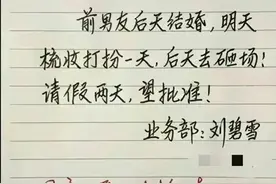 前男友后天结婚，明天
梳妆打扮一天，后天去砸场！
请假两天，望批准！
业务部：刘碧雪